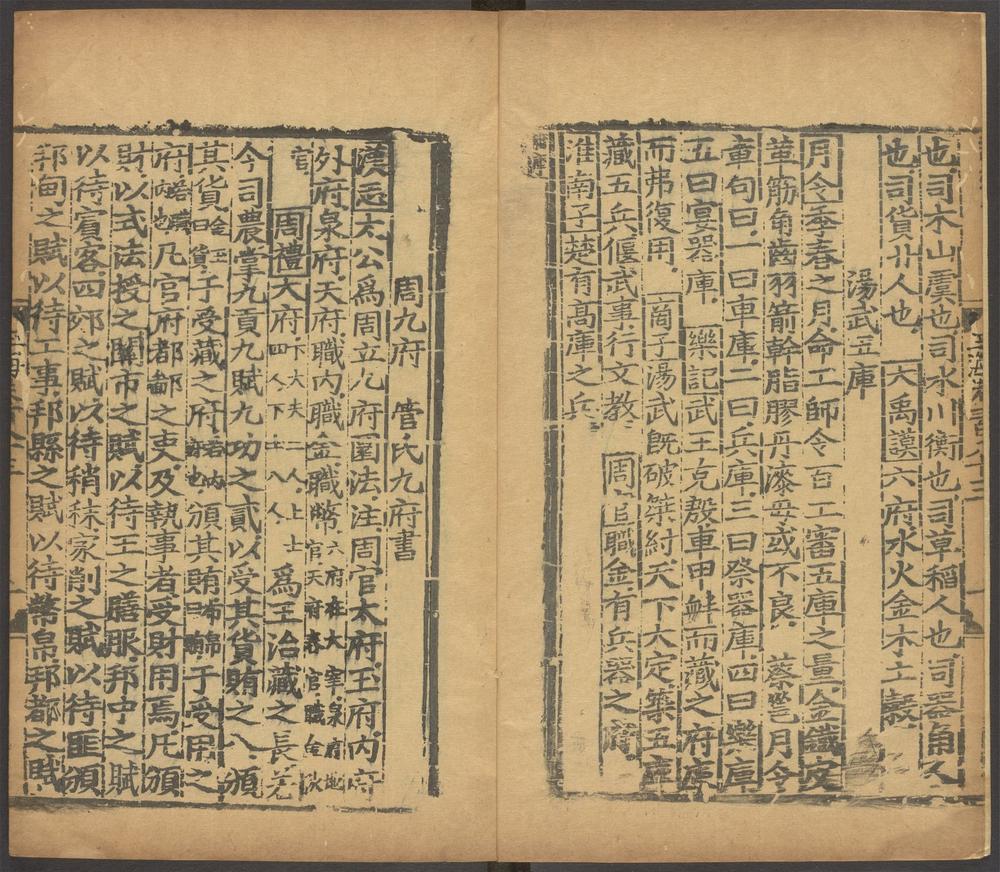 也司木山虞也司水川衡也司草稻人也司器角人
也司貨卝人也　大禹謨六府水火金木土穀
湯武五庫
月令季春之月命工師令百工審五庫之量金鐵皮
革筋角齒羽箭幹脂膠丹漆毋或不良　蔡邕月令
章句曰一曰車庫二曰兵庫三曰祭器庫四曰樂庫
五曰宴器庫　樂記武王克殷車甲衅而藏之府庫
而弗復用　商子湯武旣破桀紂天下大定築五庫
藏五兵偃武事行文教　周官職金有兵器之府
淮南子楚有高庫之兵
周九府　管氏九府書
漢志太公爲周立九府圜法注周官太府玉府內府
外府泉府天府職內職金職幣六府在大宰泉府地官天府春官職金秋
官　周禮大府下大夫二人上士四人下士八人爲王治藏之長若
今司農掌九貢九賦九功之貳以受其貨賄之入頒
其貨金玉曰貨于受藏之府若內府也頒其賄布帛曰賄于受用之
府若職內也凡官府都鄙之吏及執事者受財用焉凡頒
財以式法授之關市之賦以待王之膳服邦中之賦
以待賓客四郊之賦以待稍秣家削之賦以待匪頒
邦甸之賦以待工事邦縣之賦以待幣帛邦都之賦